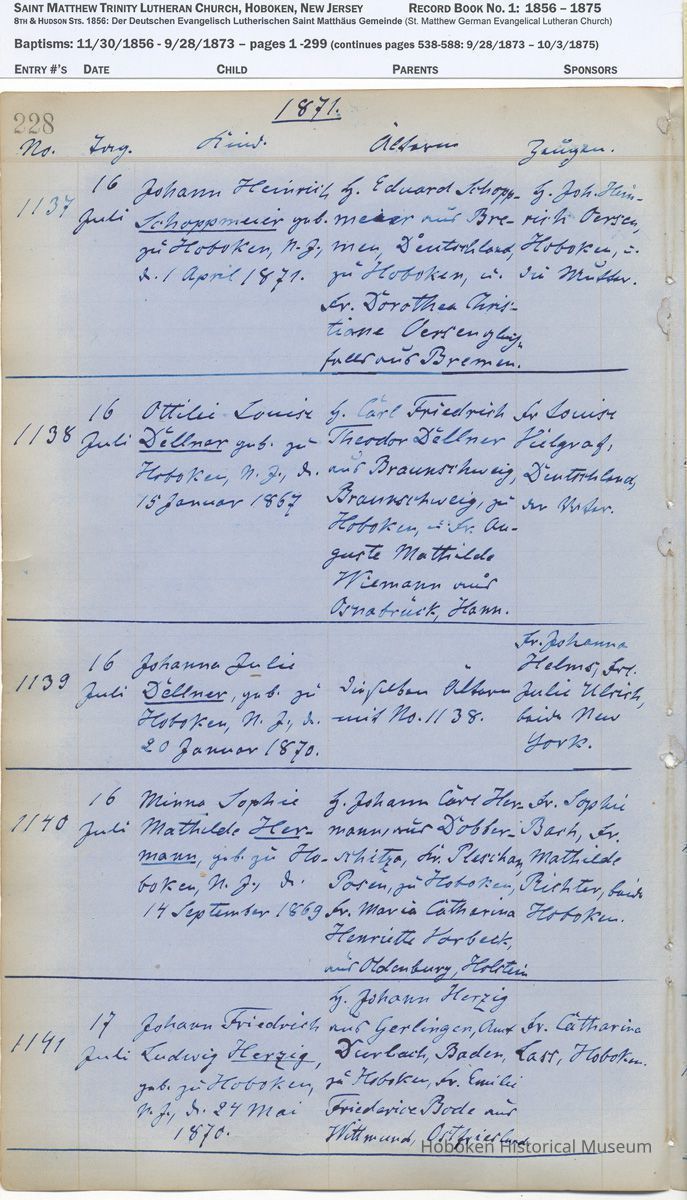 SAINT MATTHEW TRINITY LUTHERAN CHURCH, HOBOKEN, NEW JERSEY RECORD BOOK NO. 1: 1856 – 1875
8TH & HUDSON STS. 1856: Der Deutschen Evangelisch Lutherischen Saint Matthäus Gemeinde (St. Matthew German Evangelical Lutheran Church)
Baptisms: 11/30/1856 - 9/28/1873 – pages 1 -299 (continues pages 538-588: 9/28/1873 – 10/3/1875)
ENTRY #'S DATE CHILD PARENTS SPONSORS
228
1871.
No. Tag. Kind. Ältern Zeugen.
1137
16
Juli
Johann Heinrich
Schoppmeier geb.
zu Hoboken, N. J.,
d. 1 April 1871.
H. Eduard Schopp-
meier aus Bre-
men, Deutschland,
zu Hoboken, u.
Fr. Dorothea Chris-
tiane Oersen gleich-
falls aus Bremen.
H. Joh. Hein-
rich Oersen,
Hoboken, u.
die Mutter.
1138
16
Juli
Ottilie Louise
Dellner geb. zu
Hoboken, N. J., d.
15 Januar 1867
H. Carl Friedrich
Theodor Dellner
aus Braunschweig,
Braunschweig, zu
Hoboken, u. Fr. Au-
guste Mathilde
Wiemann aus
Osnabrück, Hann.
Fr Louise
Deutschland,
der Vater.
1139
16
Juli
Johanna Julie
Dellner, geb. zu
Hoboken, N. J., d.
20 Januar 1870.
Dieselben Ältern
mit No. 1138.
Fr. Johanna
Helms, Frl.
Julie Ulrich,
beide New
York.
1140
16
Juli
Minna Sophie
Mathilde Her-
mann, geb. zu Ho-
boken, N. J., d.
14 September 1869
H. Johann Carl Her-
mann, aus Dobber-
schitza, Kr. Pleschen,
Posen, zu Hoboken,
Fr. Maria Catharina
Henriette Vorbeck,
aus Oldenburg, Holstein
Fr. Sophie
Bach, Fr.
Mathilde
Richter, beide
Hoboken.
1141
17
Juli
Johann Friedrich
Ludwig Herzig,
geb. zu Hoboken,
N. J., d. 24 Mai
1870.
H. Johann Herzig
aus Gerlingen, Amt
Durlach, Baden,
zu Hoboken, Fr. Emilie
Friederice Bode aus
Wittmund, Ostfriesland
Fr. Catharina
Lass, Hoboken.
Hoboken Historical Museum